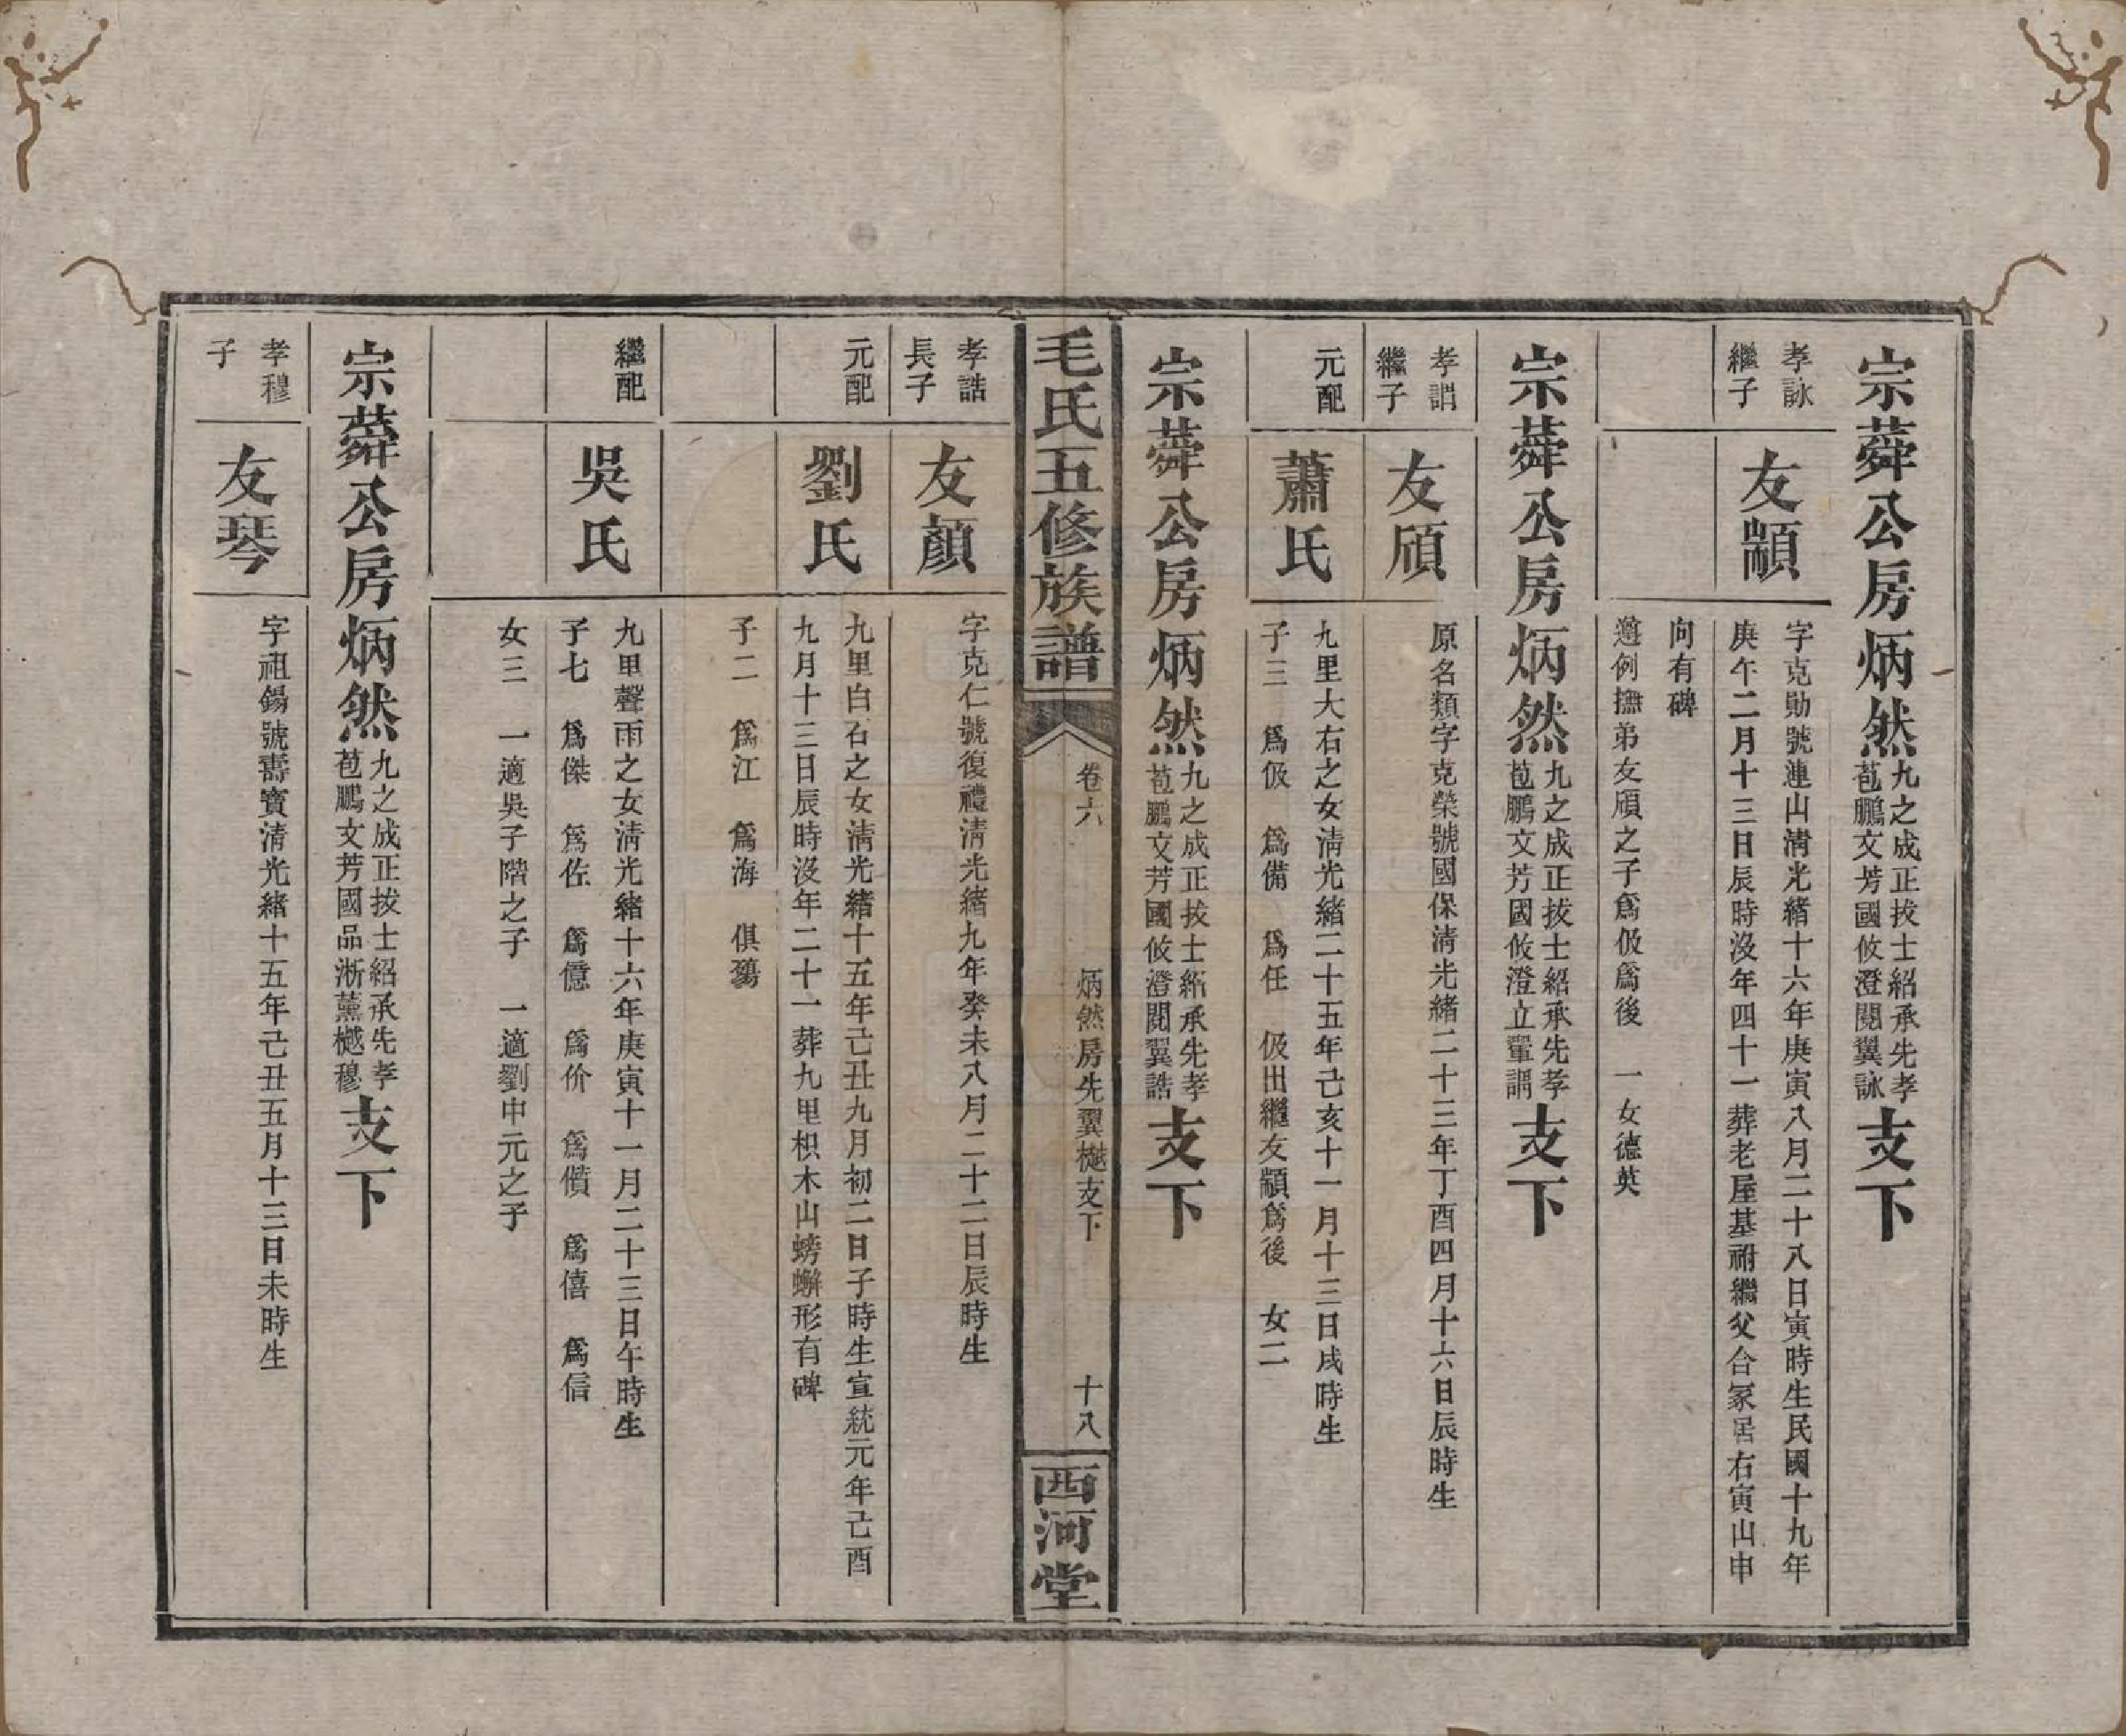 宗蕣公房炳然九之成正拔士紹承先孝
苞鵬文芳國攸澄閱翼詠支下
孝詠
繼子
友顓
字克勛號連山清光緒十六年庚寅八月二十八日寅時生民國十九年
庚午二月十三日辰時沒年四十一葬老屋基祔繼父合冢居右寅山申
向有碑
遵例撫弟友頎之子為伋為後　一女德英
宗蕣公房炳然九之成正拔士紹承先孝
苞鵬文芳國攸澄立翬謂支下
孝謂
繼子
友頎
原名類字克榮號國保清光緒二十三年丁酉四月十六日辰時生
元配
蕭氏
九里大右之女清光緒二十五年己亥十一月十三日戌時生
子三　為伋　為備　為任　伋出繼友顓為後　女二
宗蕣公房炳然九之成正拔士紹承先孝
苞鵬文芳國攸澄閱翼誥支下
毛氏五修族譜
卷六
炳然房先翼樾支下
十八
西河堂
孝誥
長子
友顏
字克仁號復禮清光緒九年癸未八月二十二日辰時生
元配
劉氏
九里白石之女清光緒十五年己丑九月初二日子時生宣統元年己酉
九月十三日辰時沒年二十一葬九里枳木山螃蠏形有碑
子二　為江　為海　俱殤
繼配
吳氏
九里聲雨之女清光緒十六年庚寅十一月二十三日午時生
子七　為傑　為佐　為億　為价　為儥　為僖　為信
女三　一適吳子階之子　一適劉申元之子
宗蕣公房炳然九之成正拔士紹承先孝
苞鵬文芳國品淅薰樾穆支下
孝穆
子
友琴
字祖錫號壽寶清光緒十五年己丑五月十三日未時生